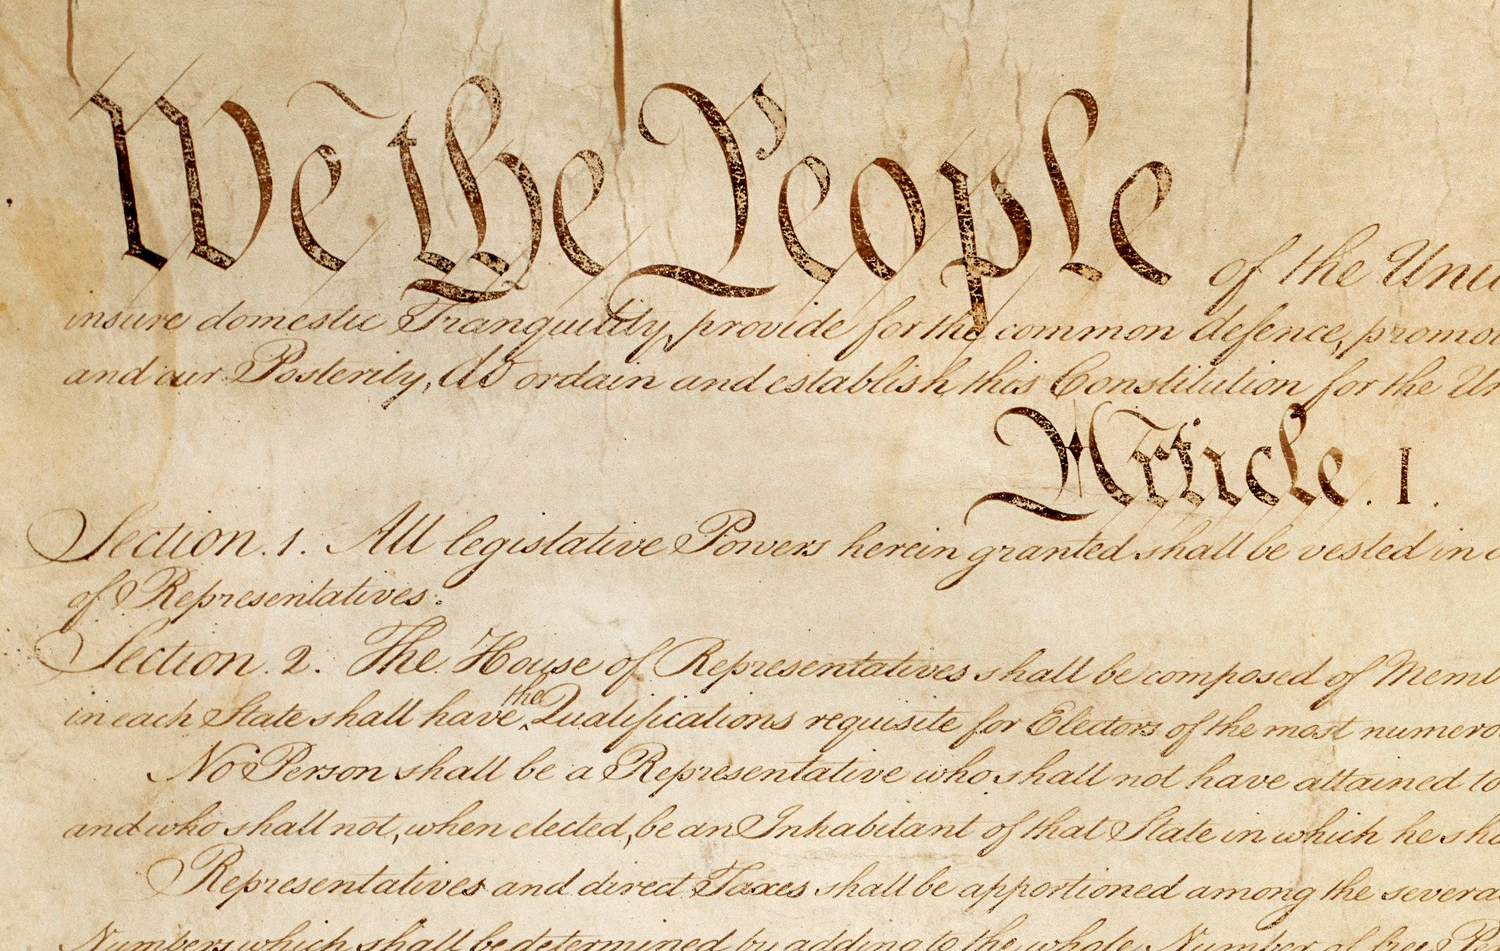 We the People of the Uni
insure domestic Tranquility, provide for the common defence, promo
and our Posterity, do ordain and establish this Constitution for the Un
Article. I.
Section. 1. All legislative Powers herein granted shall be vested in a
of Representatives.
Section. 2. The House of Representatives shall be composed of Memb
the
in each State shall have Qualifications requisite for Electors of the most numero
No Person shall be a Representative who shall not have attained to
and who shall not, when elected, be an Inhabitant of that State in which he sha
Representatives and direct Taxes shall be apportioned among the severa
Numbers which shall be determined by adding to the whole Number of free Pe